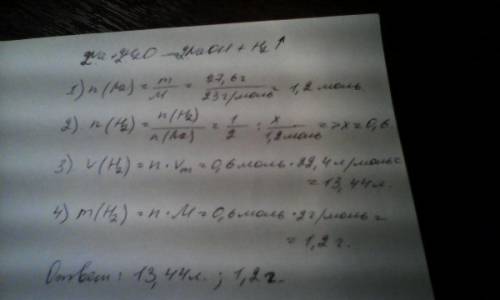 2Na + 2H₂O → 2NaOH + H₂↑
1) n(Na) = m/M = 27,6г/23г/моль = 1,2 моль
2) n(H₂) = n(H₂)/n(Na) = 1/2 : x/1,2моль => x = 0,6.
3) V(H₂) = n · Vm = 0,6 моль · 22,4 л/моль =
= 13,44л.
4) m(H₂) = n · M = 0,6 моль · 2г/моль =
= 1,2 г.
Ответ: 13,44л. ; 1,2г.